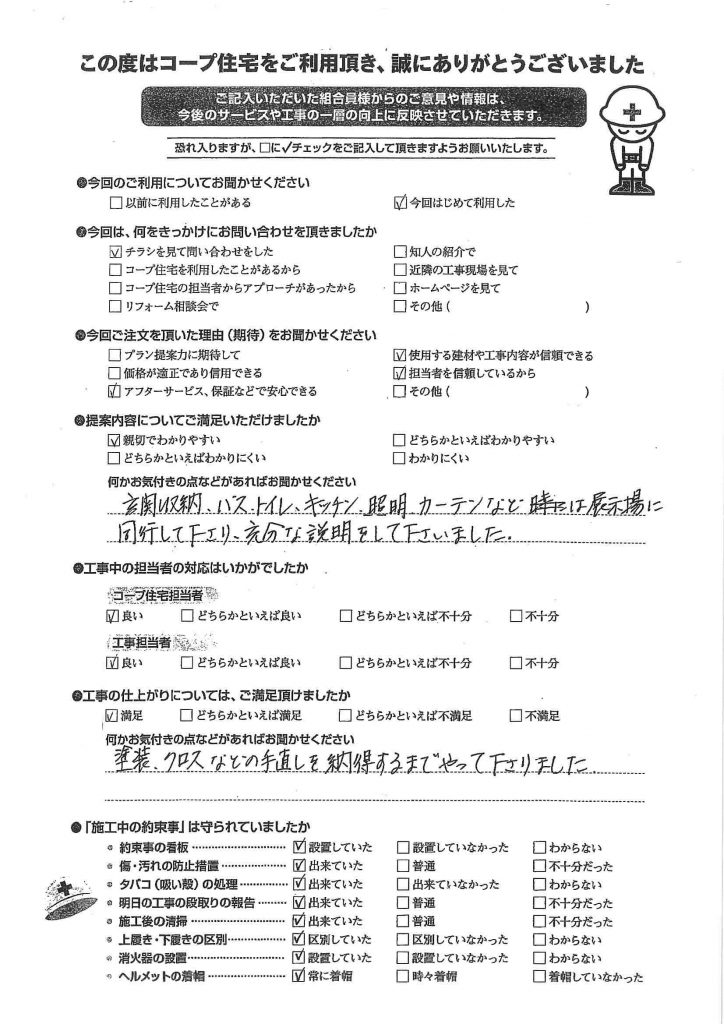 この度はコープ住宅をご利用頂き、誠にありがとうございました
ご記入いただいた組合員様からのご意見や情報は、
今後のサービスや工事の一層の向上に反映させていただきます。
恐れ入りますが、□に✓チェックをご記入して頂きますようお願いいたします。
●今回のご利用についてお聞かせください
□以前に利用したことがある ☑今回はじめて利用した
●今回は、何をきっかけにお問い合わせを頂きましたか
☑チラシを見て問い合わせをした □知人の紹介で
□コープ住宅を利用したことがあるから □近隣の工事現場を見て
□コープ住宅の担当者からアプローチがあったから □ホームページを見て
□リフォーム相談会で □その他( )
●今回ご注文を頂いた理由(期待)をお聞かせください
□プラン提案力に期待して ☑使用する建材や工事内容が信頼できる
□価格が適正であり信用できる ☑担当者を信頼しているから
☑アフターサービス、保証などで安心できる □その他( )
●提案内容についてご満足いただけましたか
☑親切でわかりやすい □どちらかといえばわかりやすい
□どちらかといえばわかりにくい □わかりにくい
何かお気付きの点などがあればお聞かせください
玄関収納、バス、トイレ、キッチン、照明、カーテンなど時には展示場に
同行して下さり、充分な説明をして下さいました。
●工事中の担当者の対応はいかがでしたか
コープ住宅担当者
☑良い □どちらかといえば良い □どちらかといえば不十分 □不十分
工事担当者
☑良い □どちらかといえば良い □どちらかといえば不十分 □不十分
●工事の仕上がりについては、ご満足頂けましたか
☑満足 □どちらかといえば満足 □どちらかといえば不満足 □不満足
何かお気付きの点などがあればお聞かせください
塗装、クロスなどの手直しを納得するまでやって下さりました。
●「施工中の約束事」は守られていましたか
約束事の看板 ☑設置していた □設置していなかった □わからない
傷・汚れの防止措置 ☑出来ていた □普通 □不十分だった
タバコ(吸い殻)の処理 ☑出来ていた □出来ていなかった □わからない
明日の工事の段取りの報告 ☑出来ていた □普通 □不十分だった
施工後の清掃 ☑出来ていた □普通 □不十分だった
上履き・下履きの区別 ☑区別していた □区別していなかった □わからない
消火器の設置 ☑設置していた □設置していなかった □わからない
ヘルメットの着帽 ☑常に着帽 □時々着帽 □着帽していなかった